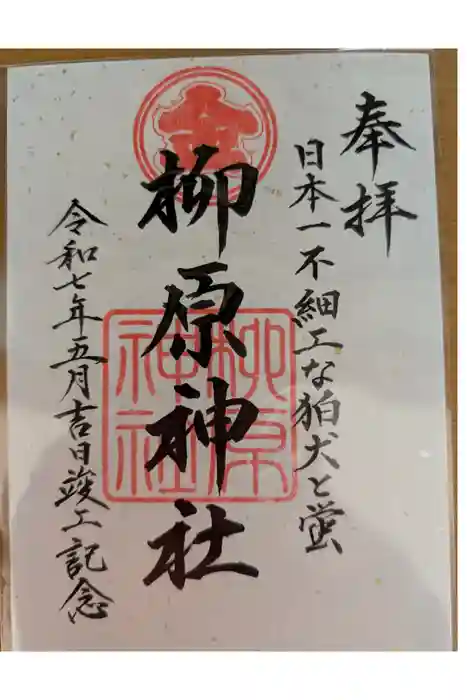 奉拝
日本一不細工な狛犬と蛍
柳原神社
柳原神社
令和七年五月吉日竣工記念